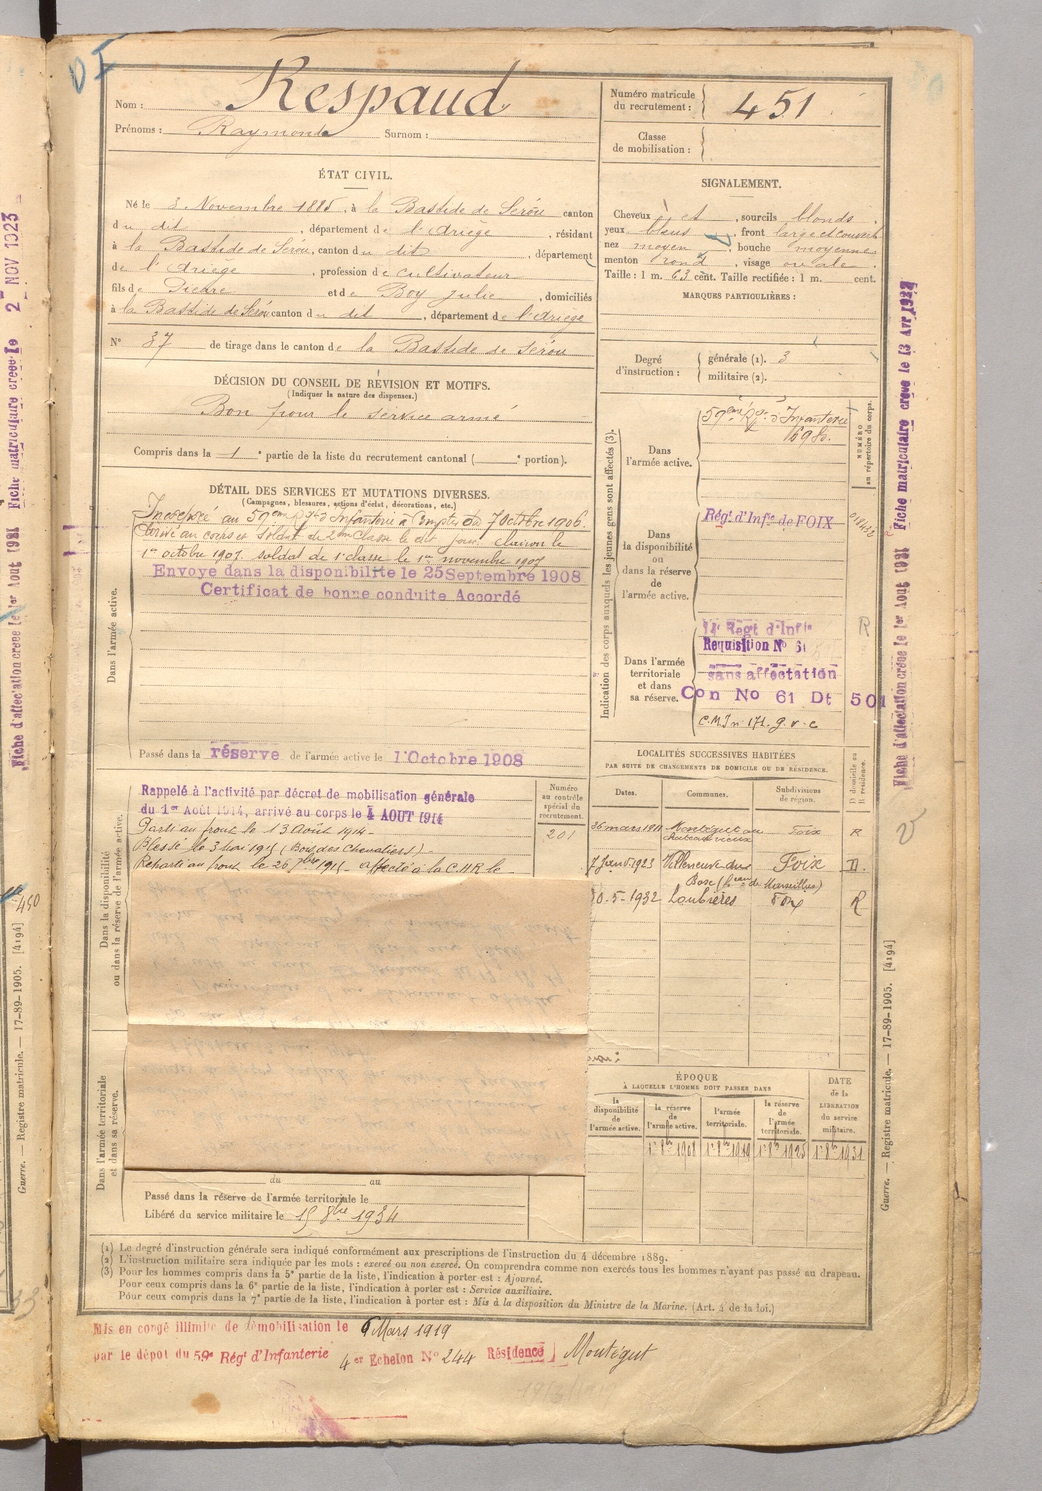 Nom : Respaud
Prénoms : Raymond Surnom :
ÉTAT CIVIL.
Né le 3 Novembre 1885, à la Bastide de Sérou canton
du dit, département de l'Ariège, résidant
à la Bastide de Sérou, canton du dit, département
de l'Ariège, profession de cultivateur
fils de Pierre et de Boy Julie, domiciliés
à la Bastide de Sérou canton du dit, département de l'Ariège
N° 37 de tirage dans le canton de la Bastide de Sérou
DÉCISION DU CONSEIL DE RÉVISION ET MOTIFS.
(Indiquer la nature des dispenses.)
Bon pour le service armé
Compris dans la 1e partie de la liste du recrutement cantonal ( e portion).
DÉTAIL DES SERVICES ET MUTATIONS DIVERSES.
(Campagnes, blessures, actions d'éclat, décorations, etc.)
Incorporé au 59eme Rgt d'Infanterie à compter du 7 Octobre 1906.
Arrivé au corps et soldat de 2eme classe le dit jour. clairon le
1er octobre 1907. soldat de 1e classe le 1er novembre 1907
Envoye dans la disponibilite le 25 Septembre 1908
Certificat de bonne conduite Accordé
Dans l'armée active.
Passé dans la réserve de l'armée active le 1 Octobre 1908
Dans la disponibilité
ou dans la réserve de l'armée active.
Rappelé à l'activité par décret de mobilisation générale
du 1er Août 1914, arrivé au corps le 4 AOUT 1914
Parti au front le 13 Août 1914
Blessé le 3 mai 1915 (Bois des Chevaliers)
Reparti au front le 26 7bre 1915 affecté à la C.H.R le
Numéro
au contrôle
spécial du
recrutement.
201
Dans l'armée territoriale
et dans sa réserve.
du au
Passé dans la réserve de l'armée territoriale le
Libéré du service militaire le 15 8bre 1934
Numéro matricule
du recrutement : 451
Classe
de mobilisation :
SIGNALEMENT.
Cheveux et, sourcils blonds.
yeux bleus, front large et couvert
nez moyen, bouche moyenne
menton rond, visage ovale.
Taille : 1 m. 63 cent. Taille rectifiée : 1 m. cent.
MARQUES PARTICULIÈRES :
Degré
d'instruction :
générale (1). 3
militaire (2).
Indication des corps auxquels les jeunes gens sont affectés (3).
NUMÉRO
au répertoire du corps.
Dans
l'armée active.
59eme Rgt d'Infanterie
1698.
Dans
la disponibilité
ou
dans la réserve
de
l'armée active.
Régt d'Infie de FOIX
Dans l'armée
territoriale
et dans
sa réserve.
Regt d'Infie
Requisition N° 6
sans affectation
Con No 61 Dt 501
R
LOCALITÉS SUCCESSIVES HABITÉES
PAR SUITE DE CHANGEMENTS DE DOMICILE OU DE RÉSIDENCE.
Dates. Communes. Subdivisions de région. D domicile ou R résidence.
26 mars 1911 Montégut en Foix R
7 Janv 1923 Villeneuve du Bosc Foix D.
0-5-1932 Loubières Foix R
ÉPOQUE
À LAQUELLE L'HOMME DOIT PASSER DANS
la disponibilité de l'armée active.
la réserve de l'armée active.
l'armée territoriale.
la réserve de l'armée territoriale.
DATE de la LIBÉRATION du service militaire.
1r 8bre 1908 1r 8bre 1919 1r 8bre 1925 1r 8bre 1931
(1) Le degré d'instruction générale sera indiqué conformément aux prescriptions de l'instruction du 4 décembre 1889.
(2) L'instruction militaire sera indiquée par les mots : exercé ou non exercé. On comprendra comme non exercés tous les hommes n'ayant pas passé au drapeau.
(3) Pour les hommes compris dans la 5e partie de la liste, l'indication à porter est : Ajourné.
Pour ceux compris dans la 6e partie de la liste, l'indication à porter est : Service auxiliaire.
Pour ceux compris dans la 7e partie de la liste, l'indication à porter est : Mis à la disposition du Ministre de la Marine. (Art. 4 de la loi.)
Mis en congé illimité de démobilisation le 6 Mars 1919
par le dépot du 59e Régt d'Infanterie 4er Echelon N° 244 Résidence Montégut
Fiche d'affectation créée le 1er Août 1921 Fiche matriculaire créée le 13 Avr 1922
Guerre. — Registre matricule. — 17-89-1905. [4194]
Fiche d'affectation créée le 1er Août 1921 Fiche matriculaire créée le 2 NOV 1923
Guerre. — Registre matricule. — 17-89-1905. [4194]
450